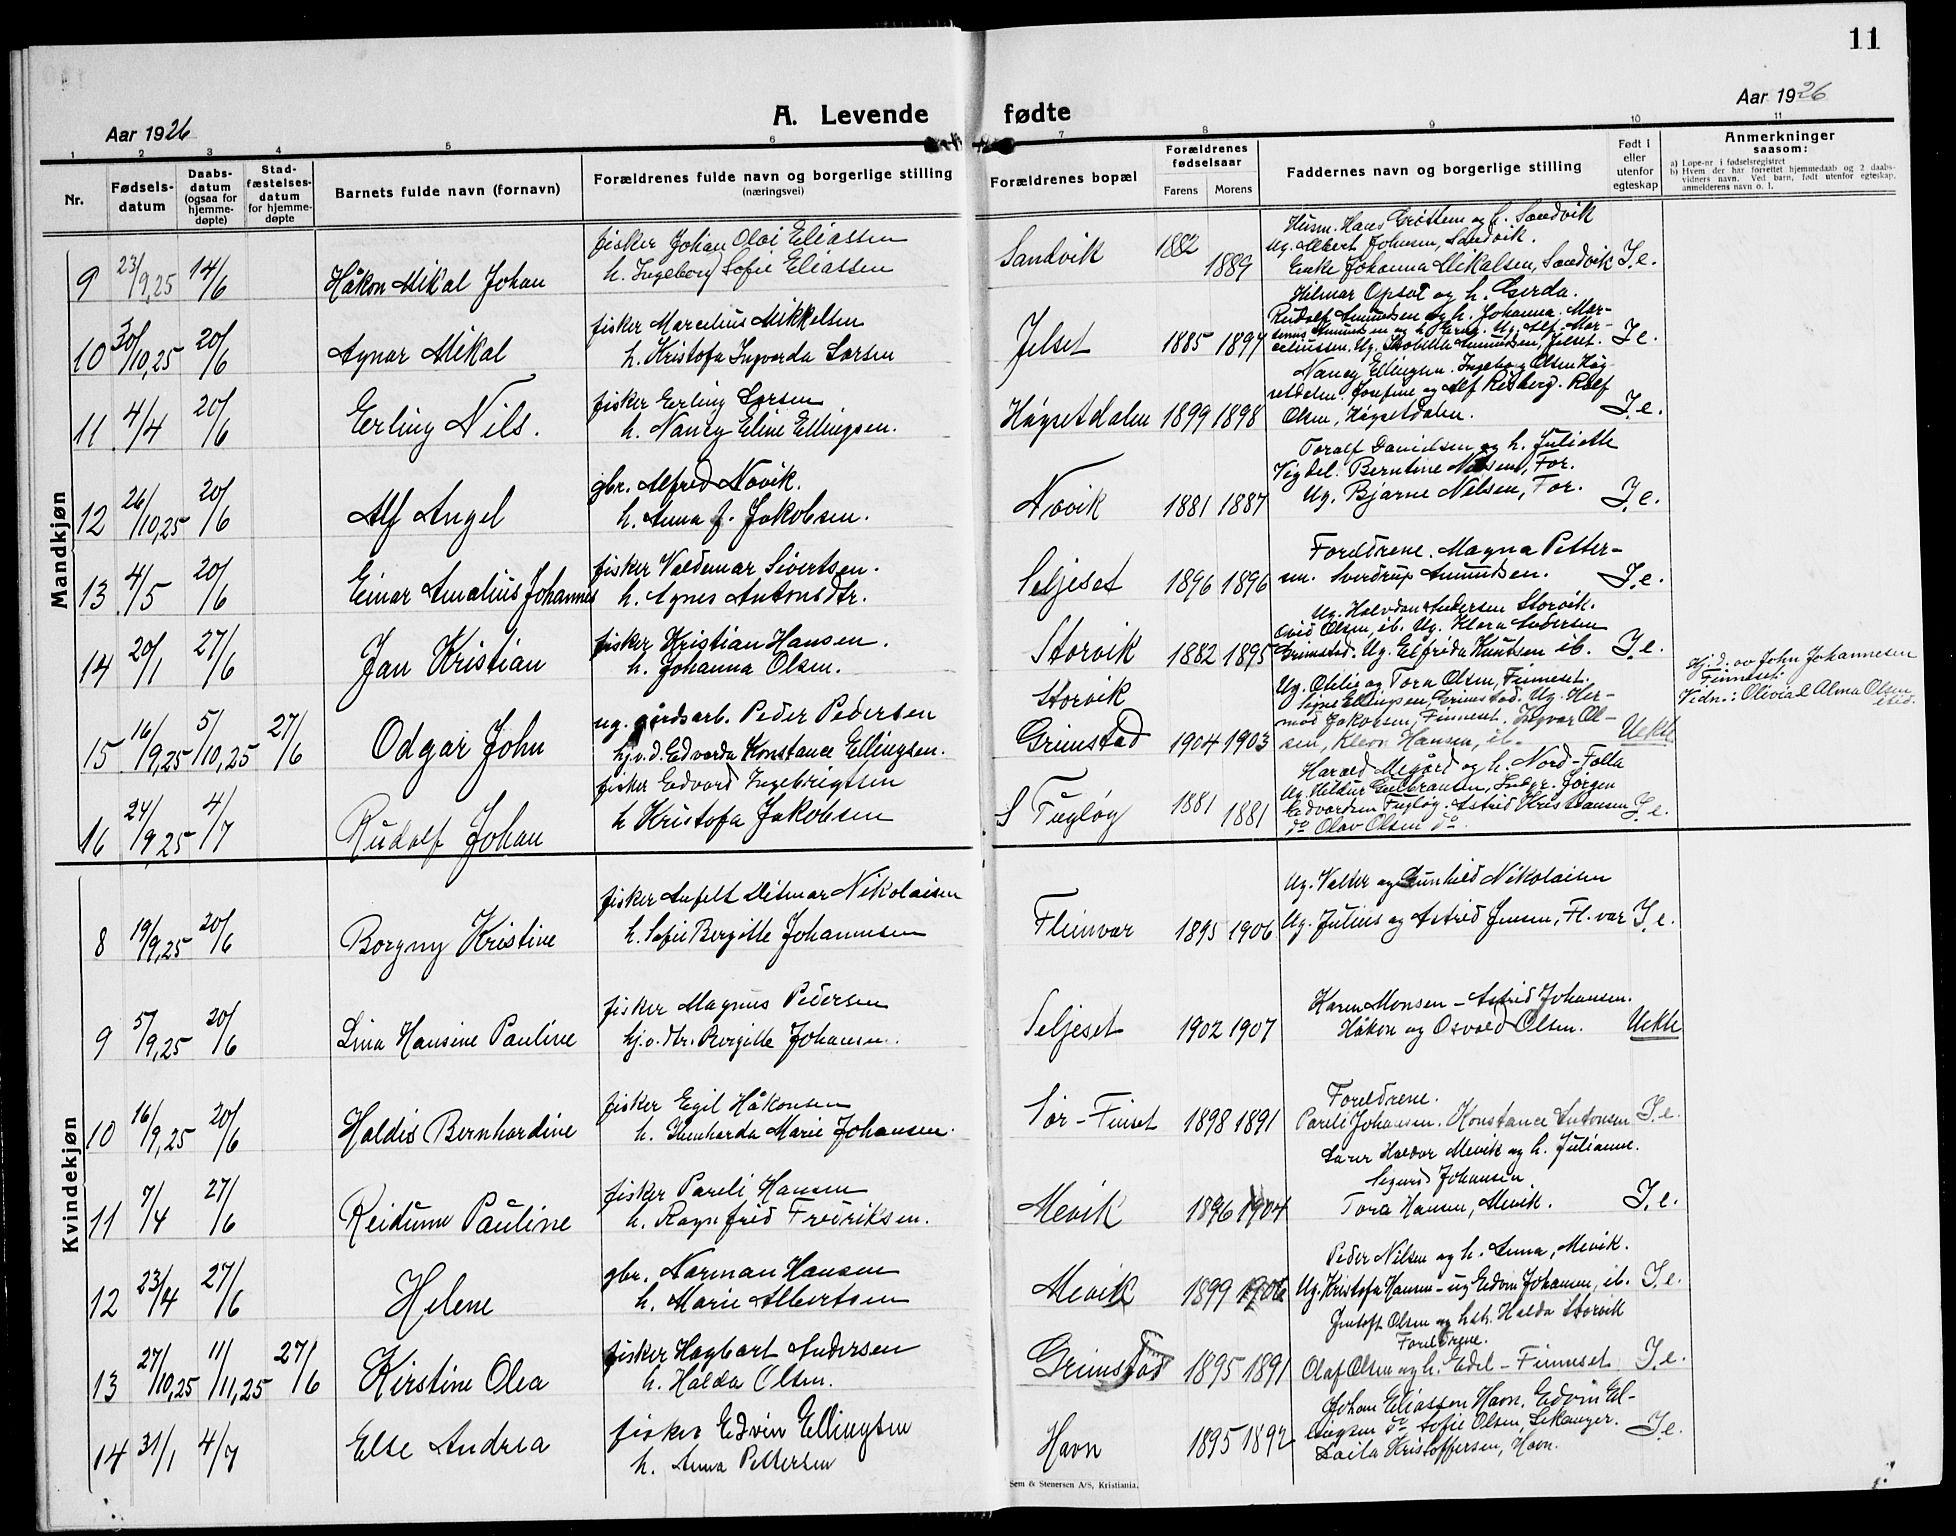 11
Aar 1926
A. Levende fødte
Aar 1926
1 2 3 4 5 6 7 8 9 10 11
Nr.
Fødsels-datum
Daabs-datum (ogsaa for hjemme-døpte)
Stad-fæstelses-datum for hjemme-døpte
Barnets fulde navn (fornavn)
Forældrenes fulde navn og borgerlige stilling (næringsvei)
Forældrenes bopæl
Forældrenes fødselsaar
Farens Morens
Faddernes navn og borgerlige stilling
Født i eller utenfor egteskap
Anmerkninger saasom:
a) Løpe-nr i fødselsregistret
b) Hvem der har forrettet hjemmedaab og 2 daabs-vidners navn. Ved barn, født utenfor egteskap, anmelderens navn o. l.
Mandkjøn
Husm. Hans Grøttem og h. Sandvik
fisker Johan Olai Eliassen
Ug. Albert Johnsen, Sandvik.
9 23/9,25 14/6 Håkon Mikal Johan h. Ingeborg Sofie Eliassen Sandvik 1882 1889 Enke Johanna Mikalsen, Sandvik I.e.
Hilmar Opsal og h. Gerda.
fisker Marcelius Mikkelsen
Rudolf Amundsen og h. Johanna. Mar-
10 30/10,25 20/6 Agnar Mikal h. Kristofa Ingvarda Larsen Jelset 1885 1894 I.e.
Nancy Ellingsen. Ingeborg Olsen Høg-
fisker Erling Larsen
setdalen. Josefine og Alf Risberg. Rolf
11 4/4 20/6 Erling Nils. h. Nancy Eline Ellingsen. Høgsetdalen 1899 1898 Olsen, Høgsetdalen. I.e.
Toralf Danielsen og h. Juliette
gbr. Alfred Novik.
Vigdel. Berntine Nilsen, For.
12 26/10,25 20/6 Alf Angel h. Anna f. Jakobsen. Novik 1881 1887 Ug. Bjarne Nilsen, For. I.e.
fisker Valdemar Sivertsen.
Foreldrene. Magna Petter-
13 4/5 20/6 Einar Amalius Johannes h. Agnes Antonsdtr. Seljeset 1896 1896 sen. Sverdrup Amundsen. I.e.
Ug. Halvdan Andersen Storvik.
fisker Kristian Hansen.
Ovid Olsen, ib. Ug. Klara
14 20/1 27/6 Jan Kristian h. Johanna Olsen. Storvik 1882 1895 Grimstad. Ug. Elfrida Knutsen ib. I.e.
Hj.d. av John Johannesen
Finneset.
Vidn.: Olivia & Alma Olsen
Ug. Otilie og Tora Olsen, Finneset.
Storvik
Signe Ellingsen, Grimstad. Ug. Her-
ug. gårdsarb. Peder Pedersen
mod Jakobsen, Finneset. Ingvar Ol-
15 16/9,25 5/10,25 27/6 Odgar John hj.v.d. Edvarda Konstance Ellingsen. Grimstad 1904 1903 sen, Kleon Hansen, ib. Uekte
Harald Megård og h. Nord-Folla
fisker Edvard Ingebrigtsen
Ug. Hildur Gulbransen, Jørgen
16 24/9,25 4/7 Rudolf Johan h Kristofa Jakobsen S Fugløy 1881 1881 Edvardsen Fugløy. Astrid Kristiansen I.e.
do Olav Olsen do.
Kvindekjøn
fisker Anfelt Ditmar Nikolaisen
Ug. Valter og Gunhild Nikolaisen
8 19/9,25 20/6 Borgny Kristine h. Sofie Bergitte Johannesen Fleinvær 1895 1906 Ug. Julius og Astrid Jensen, Fl.vær I.e.
fisker Magnus Pedersen
Karen Monsen - Astrid Johansen.
9 5/9,25 20/6 Lina Hansine Pauline hj.v.dtr. Birgitte Johansen. Seljeset 1902 1907 Håkon og Osvald Olsen. Uekte
fisker Egil Håkonsen
Foreldrene.
10 16/9,25 20/6 Haldis Bernhardine h. Marie Johansen. Sør-Finset 1898 1891 Pareli Johansen. Konstance Antonsen I.e.
Lærer Haldor Mevik og h. Julianne.
fisker Pareli Hansen
Sigurd Johansen.
11 7/4 27/6 Reidunn Pauline h. Ragnfrid Fredriksen. Mevik 1896 1904 Tora Hansen, Mevik. I.e.
Peder Nilsen og h. Anna, Mevik.
gbr. Norman Hansen
12 23/4 27/6 Helene h. Marie Albertsen Mevik 1899 1906 Ug. Kristofa Hansen - ug Edvin Johansen, ib. I.e.
Jentoft Olsen og h. Halda Storvik
fisker Hagbart Andersen
Foreldrene.
13 27/10,25 11/11,25 27/6 Kirstine Olea h. Halda Olsen. Grimstad 1895 1891 Olaf Olsen og h. Edel - Finneset I.e.
Johan Eliassen Havn. Edvin El-
fisker Edvin Ellingsen
lingsen do Sofie Olsen, Lekanger.
14 31/1 4/7 Else Andrea h. Anna Pettersen Havn 1895 1892 Laila Kristoffersen, Havn. I.e.
Sem & Stenersen A/S, Kristiania.